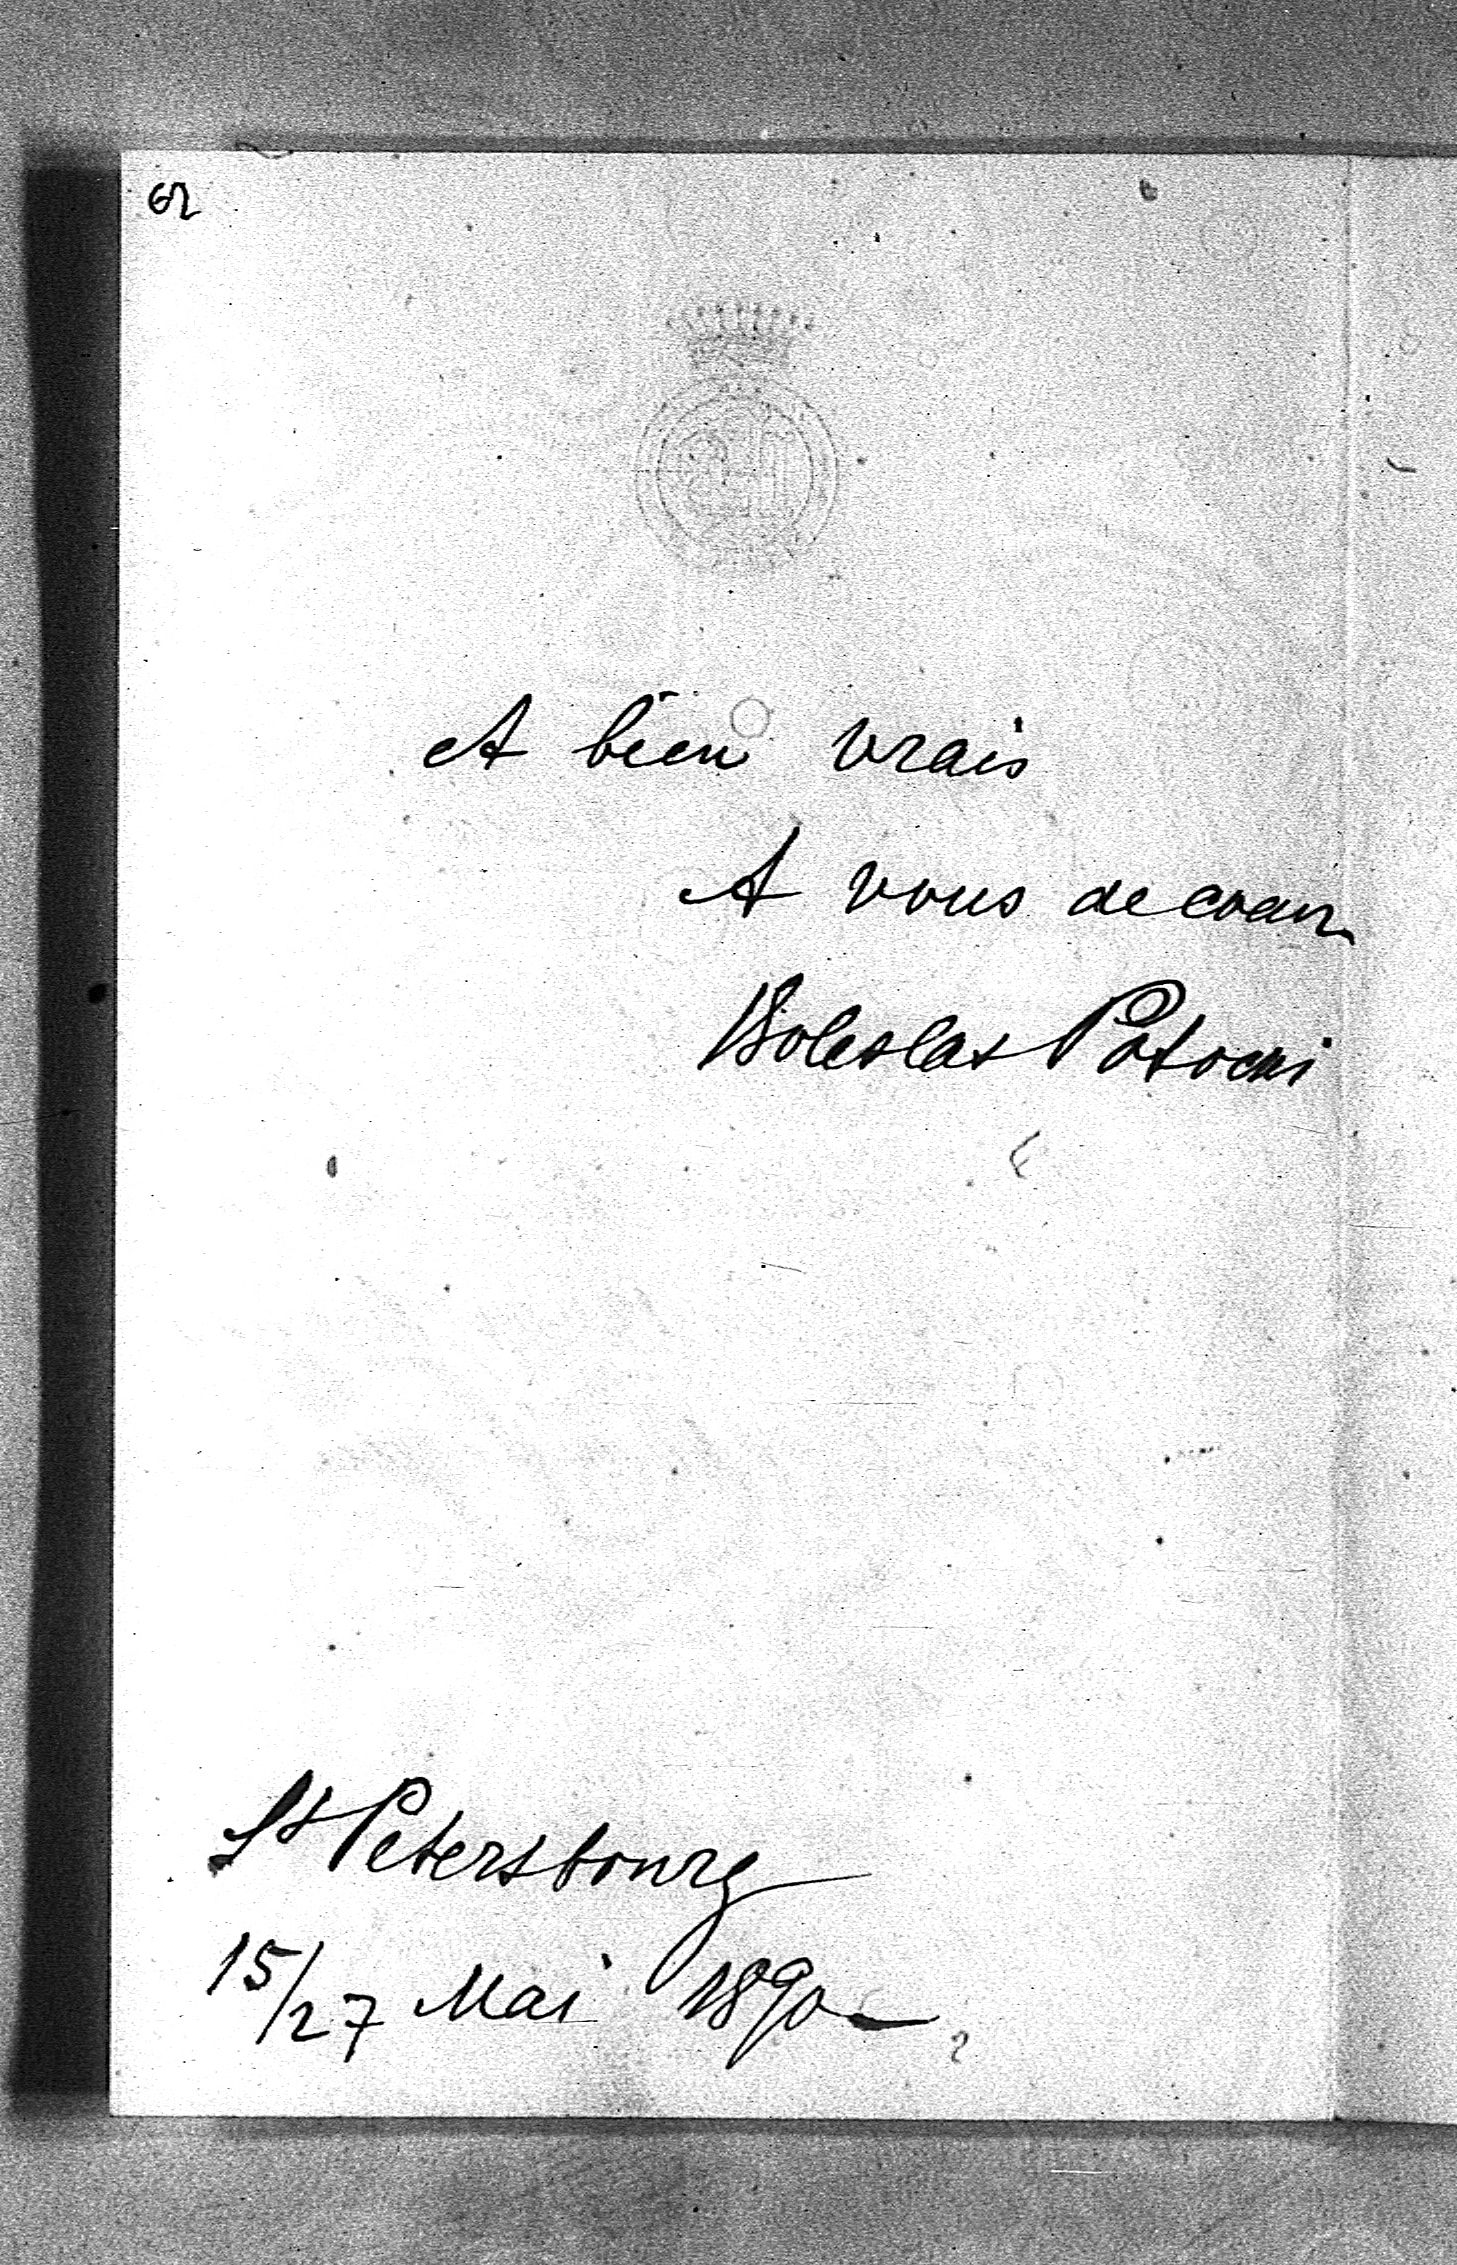 62
A bien vrais
A vous de coeur
Boleslas Potocki
St Petersbourg
15/27 Mai 1890